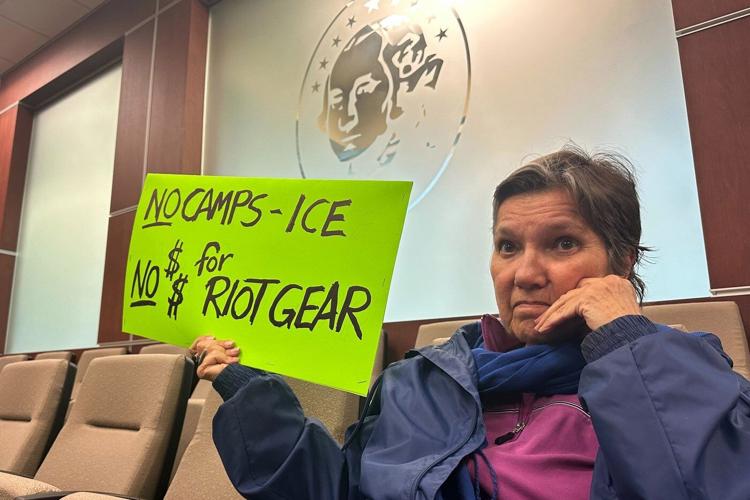 NO CAMPS - ICE
NO $ $ for
RIOT GEAR